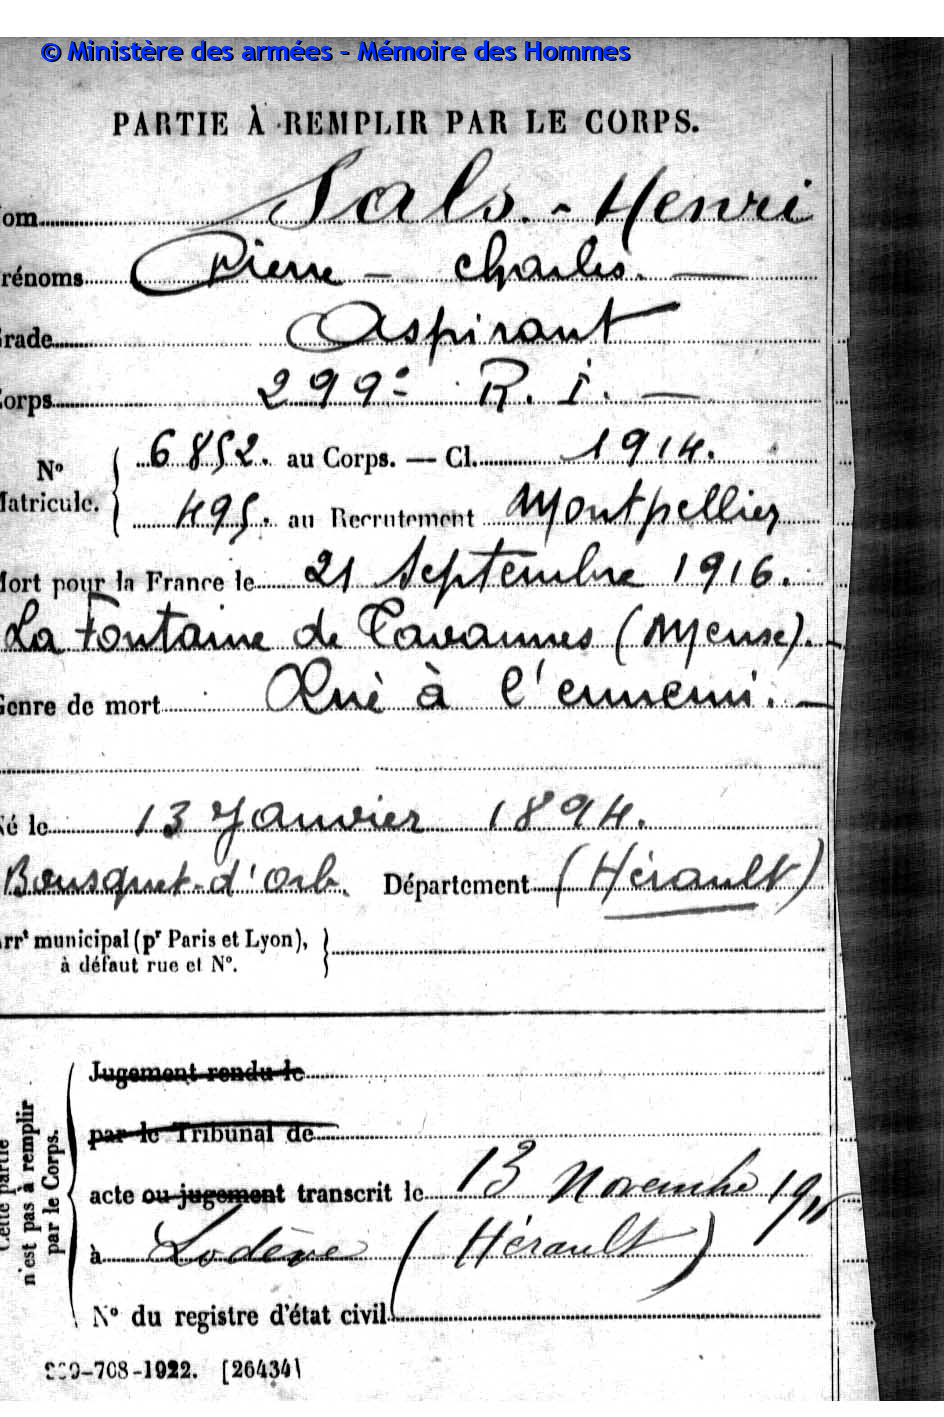 © Ministère des armées - Mémoire des Hommes
PARTIE À REMPLIR PAR LE CORPS.
om Sals.- Henri
rénoms Pierre - Charles. —
rade Aspirant
orps 299e R. I. —
N° 6852. au Corps. — Cl. 1914.
atricule. 495. au Recrutement Montpellier
ort pour la France le 21 Septembre 1916.
La Fontaine de Tavannes (Meuse). -
Genre de mort Tué à l'ennemi. -
é le 13 Janvier 1894.
Bousquet-d'Orb. Département (Hérault)
rrt municipal (pr Paris et Lyon),
à défaut rue et N°.
Cette partie
n'est pas à remplir
par le Corps.
Jugement rendu le
par le Tribunal de
acte ou jugement transcrit le 13 Novembre
à Lodève (Hérault)
N° du registre d'état civil
-708-1922. [26434]